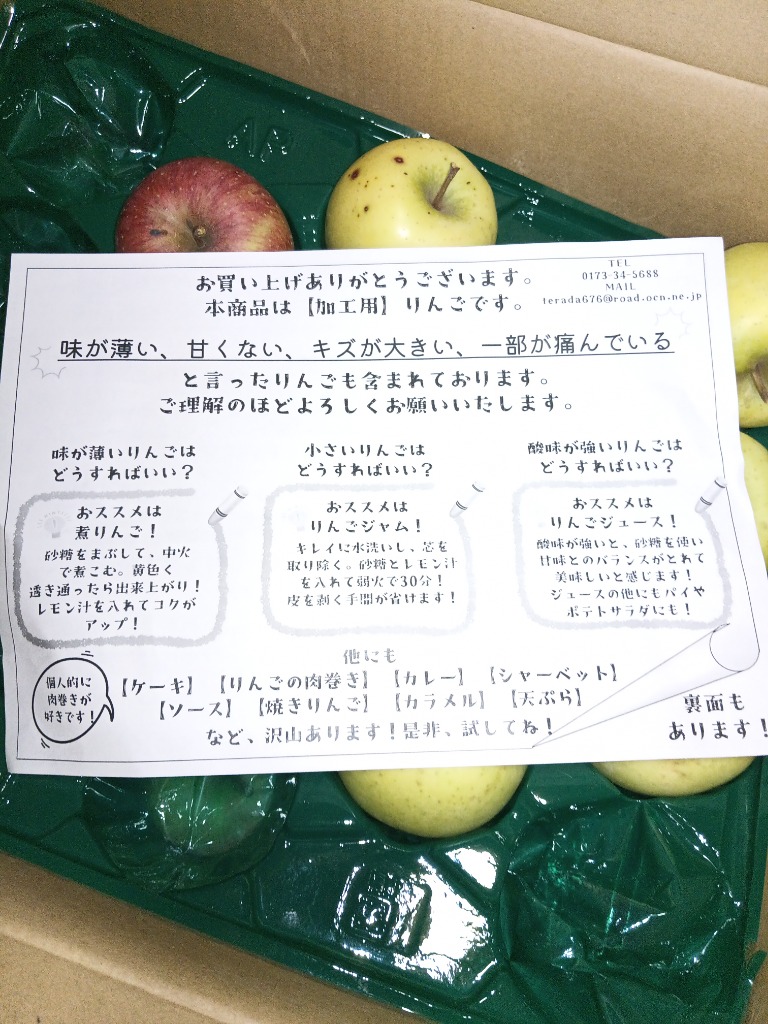 お買い上げありがとうございます。
本商品は【加工用】りんごです。
TEL
0173-34-5688
MAIL
terada676@road.ocn.ne.jp
味が薄い、甘くない、キズが大きい、一部が痛んでいる
と言ったりんごも含まれております。
ご理解のほどよろしくお願いいたします。
味が薄いりんごは
どうすればいい？
おススメは
煮りんご！
砂糖をまぶして、中火
で煮こむ。黄色く
透き通ったら出来上がり！
レモン汁を入れてコクが
アップ！
小さいりんごは
どうすればいい？
おススメは
りんごジャム！
キレイに水洗いし、芯を
取り除く。砂糖とレモン汁
を入れて弱火で30分！
皮を剥く手間が省けます！
酸味が強いりんごは
どうすればいい？
おススメは
りんごジュース！
酸味が強いと、砂糖を使い
甘味とのバランスがとれて
美味しいと感じます！
ジュースの他にもパイや
ポテトサラダにも！
他にも
【ケーキ】【りんごの肉巻き】【カレー】【シャーベット】
【ソース】【焼きりんご】【カラメル】【天ぷら】
など、沢山あります！是非、試してね！
個人的に
肉巻きが
好きです！
裏面も
あります！